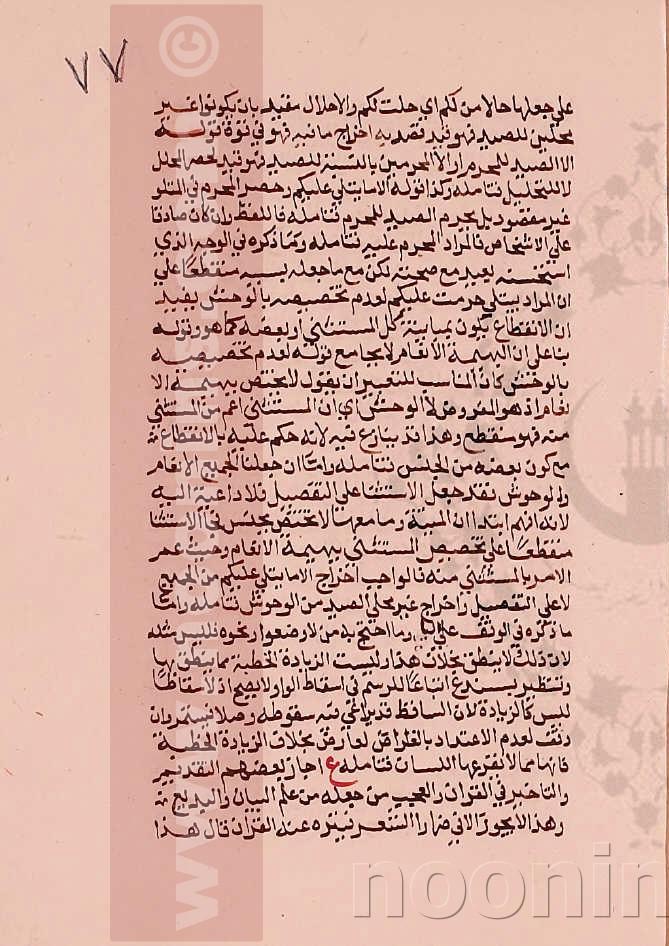 ٧٧
على جعلها حالا من لكم اي حلت لكم والاحلال مقيد بان يكونوا غير
محلين للصيد فهو قيد قصد به اخراج ما نيه فهو في قوة قوله
الا الصيد للمحرم او الا المحرمين بالنسبة للصيد فهو قيد لحصر المحلل
لا للتحليل فتامله وكذا قوله الا ما يتلى عليكم وحصر المحرم في المتلو
غير مقصود بل يحرم الصيد للمحرم فتامله فاللفظ وان كان صادقا
على الاشخاص فالمراد المحرم عليه فتامله وما ذكره في الوجه الذي
استحسنه بعيد مع صحته لكن مع ما جعله يسه منقطعا على
ان المراد بيتلى حرمت عليكم لعدم تخصيصه بالوحش يفيد
ان الانقطاع يكون بمباينة كل المستثنى او بعضه كما هو وقوله
بنا على ان البهيمة الانعام لا يجامع قوله لعدم تخصيصه
بالوحش كان المناسب للتعبير ان يقول لا يختص ببهيمة الا
نعام اذ هو المفروض لا الوحش اي ان المستثنى اعم من المستثنى
منه فهو منقطع وهذا قد ينازع فيه لانه حكم عليه بالانقطاع
مع كون بعضه من الجنس فتامله واما ان جعلنا لجميع الانعام
والوحوش فقد جعل الاستثنا على التفصيل فلا داعية اليه
لانه افهم ابتدا ان الميتة وما معها لا تختص بجنس في الاستثنا
منقطعا على تخصيص المستثنى ببهيمة الانعام وحيث عمر
الامر بالمستثنى منه فالواجب اخراج الا ما يتلى عليكم من الجميع
لا على التفصيل واخراج غير محلي الصيد من الوحوش فتامله واما
ما ذكره في الوقف على اليا وما احتج به من لا وضعوا ونحوه فليس مثله
لان ذلك لا ينطق بخلاف هذا وليست الزيادة الخطية مما ينطق بها
وتنظير بسدع اتباعا للرسم في اسقاط الواو لا يصح اذ لاسقاطا
ليس كالزيادة لان الساقط قد يراعى فيه سقوطه وصلا فيستمر وان
وقف لعدم الاعتداد بالعارض لعارض بخلاف الزيادة الخطية
فانها مما لا يفرعها اللسان فتامله ع اجاز بعضهم التقديم
والتاخير في القران والعجب من جعله من علم البيان والبديع
وهذا لا يجوز الا في ضار الشعر فينزه عنه القران قال هذا
noonin
www
©